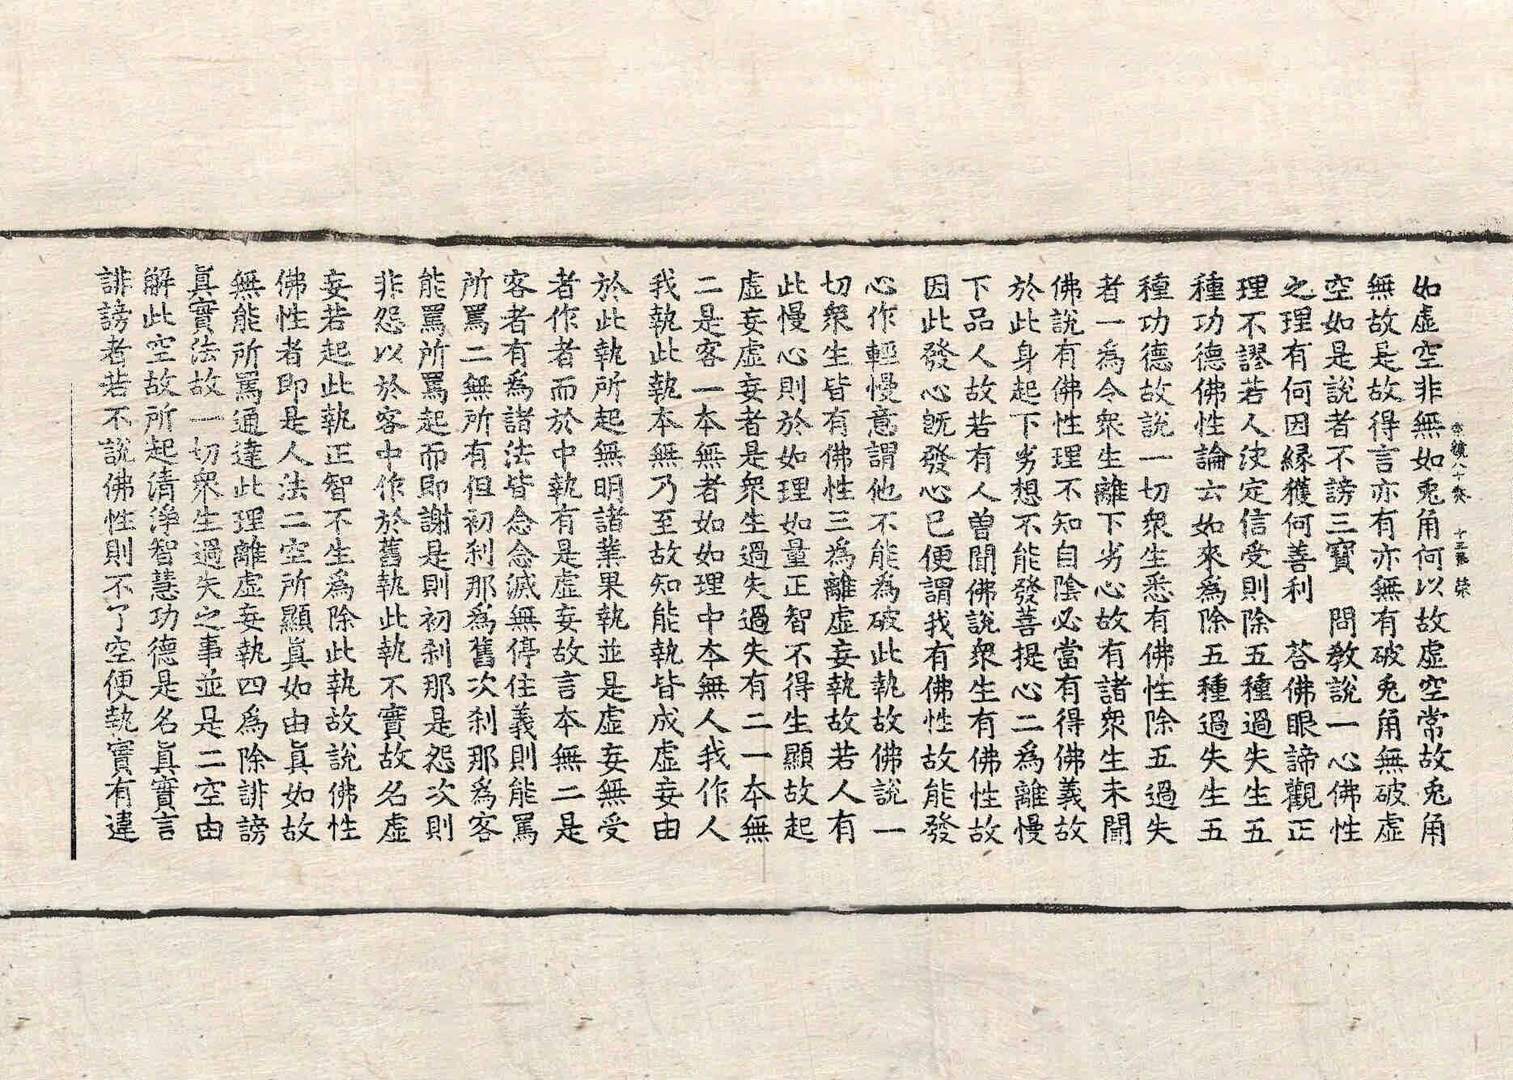 宗鏡八十卷 十五張 榮
如虛空非無如兎角何以故虛空常故兎角
無故是故得言亦有亦無有破兎角無破虛
空如是說者不謗三寶 問敎說一心佛性
之理有何因緣獲何善利 荅佛眼諦觀正
理不謬若人決定信受則除五種過失生五
種功德佛性論云如來爲除五種過失生五
種功德故說一切衆生悉有佛性除五過失
者一爲令衆生離下劣心故有諸衆生未聞
佛說有佛性理不知自陰必當有得佛義故
於此身起下劣想不能發菩提心二爲離慢
下品人故若有人曾聞佛說衆生有佛性故
因此發心旣發心已便謂我有佛性故能發
心作輕慢意謂他不能爲破此執故佛說一
切衆生皆有佛性三爲離虛妄執故若人有
此慢心則於如理如量正智不得生顯故起
虛妄虛妄者是衆生過失過失有二一本無
二是客一本無者如如理中本無人我作人
我執此執本無乃至故知能執皆成虛妄由
於此執所起無明諸業果執並是虛妄無受
者作者而於中執有是虛妄故言本無二是
客者有爲諸法皆念念滅無停住義則能罵
所罵二無所有但初刹那爲舊次刹那爲客
能罵所罵起而即謝是則初刹那是怨次則
非怨以於客中作於舊執此執不實故名虛
妄若起此執正智不生爲除此執故說佛性
佛性者即是人法二空所顯眞如由眞如故
無能所罵通達此理離虛妄執四爲除誹謗
眞實法故一切衆生過失之事並是二空由
解此空故所起清淨智慧功德是名眞實言
誹謗者若不說佛性則不了空便執實有違